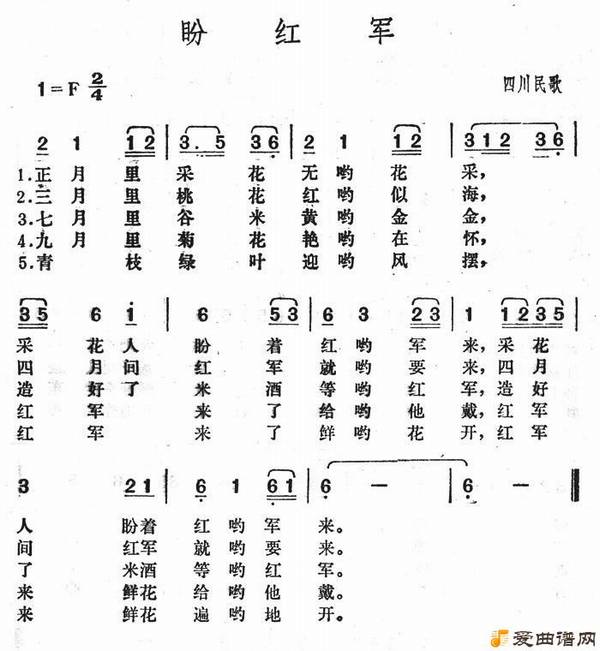 盼 红 军
1=F 2/4
四川民歌
2 1 12 | 3. 5 36 | 2 1 12 | 312 36 |
1.正 月 里 采 花 无 哟 花 采,
2.三 月 里 桃 花 红 哟 似 海,
3.七 月 里 谷 米 黄 哟 金 金,
4.九 月 里 菊 花 艳 哟 在 怀,
5.青 枝 绿 叶 迎 哟 风 摆,
35 6 1 | 6 53 | 6 3 23 | 1 12 35 |
采 花 人 盼 着 红 哟 军 来,采 花
四 月 间 红 军 就 哟 要 来,四 月
造 好 了 米 酒 等 哟 红 军,造 好
红 军 来 了 给 哟 他 戴,红 军
红 军 来 了 鲜 哟 花 开,红 军
3 21 | 6 1 61 | 6 — | 6 — ‖
人 盼着 红 哟 军 来。
间 红军 就 哟 要 来。
了 米酒 等 哟 红 军。
来 鲜花 给 哟 他 戴。
来 鲜花 遍 哟 地 开。
爱曲谱网